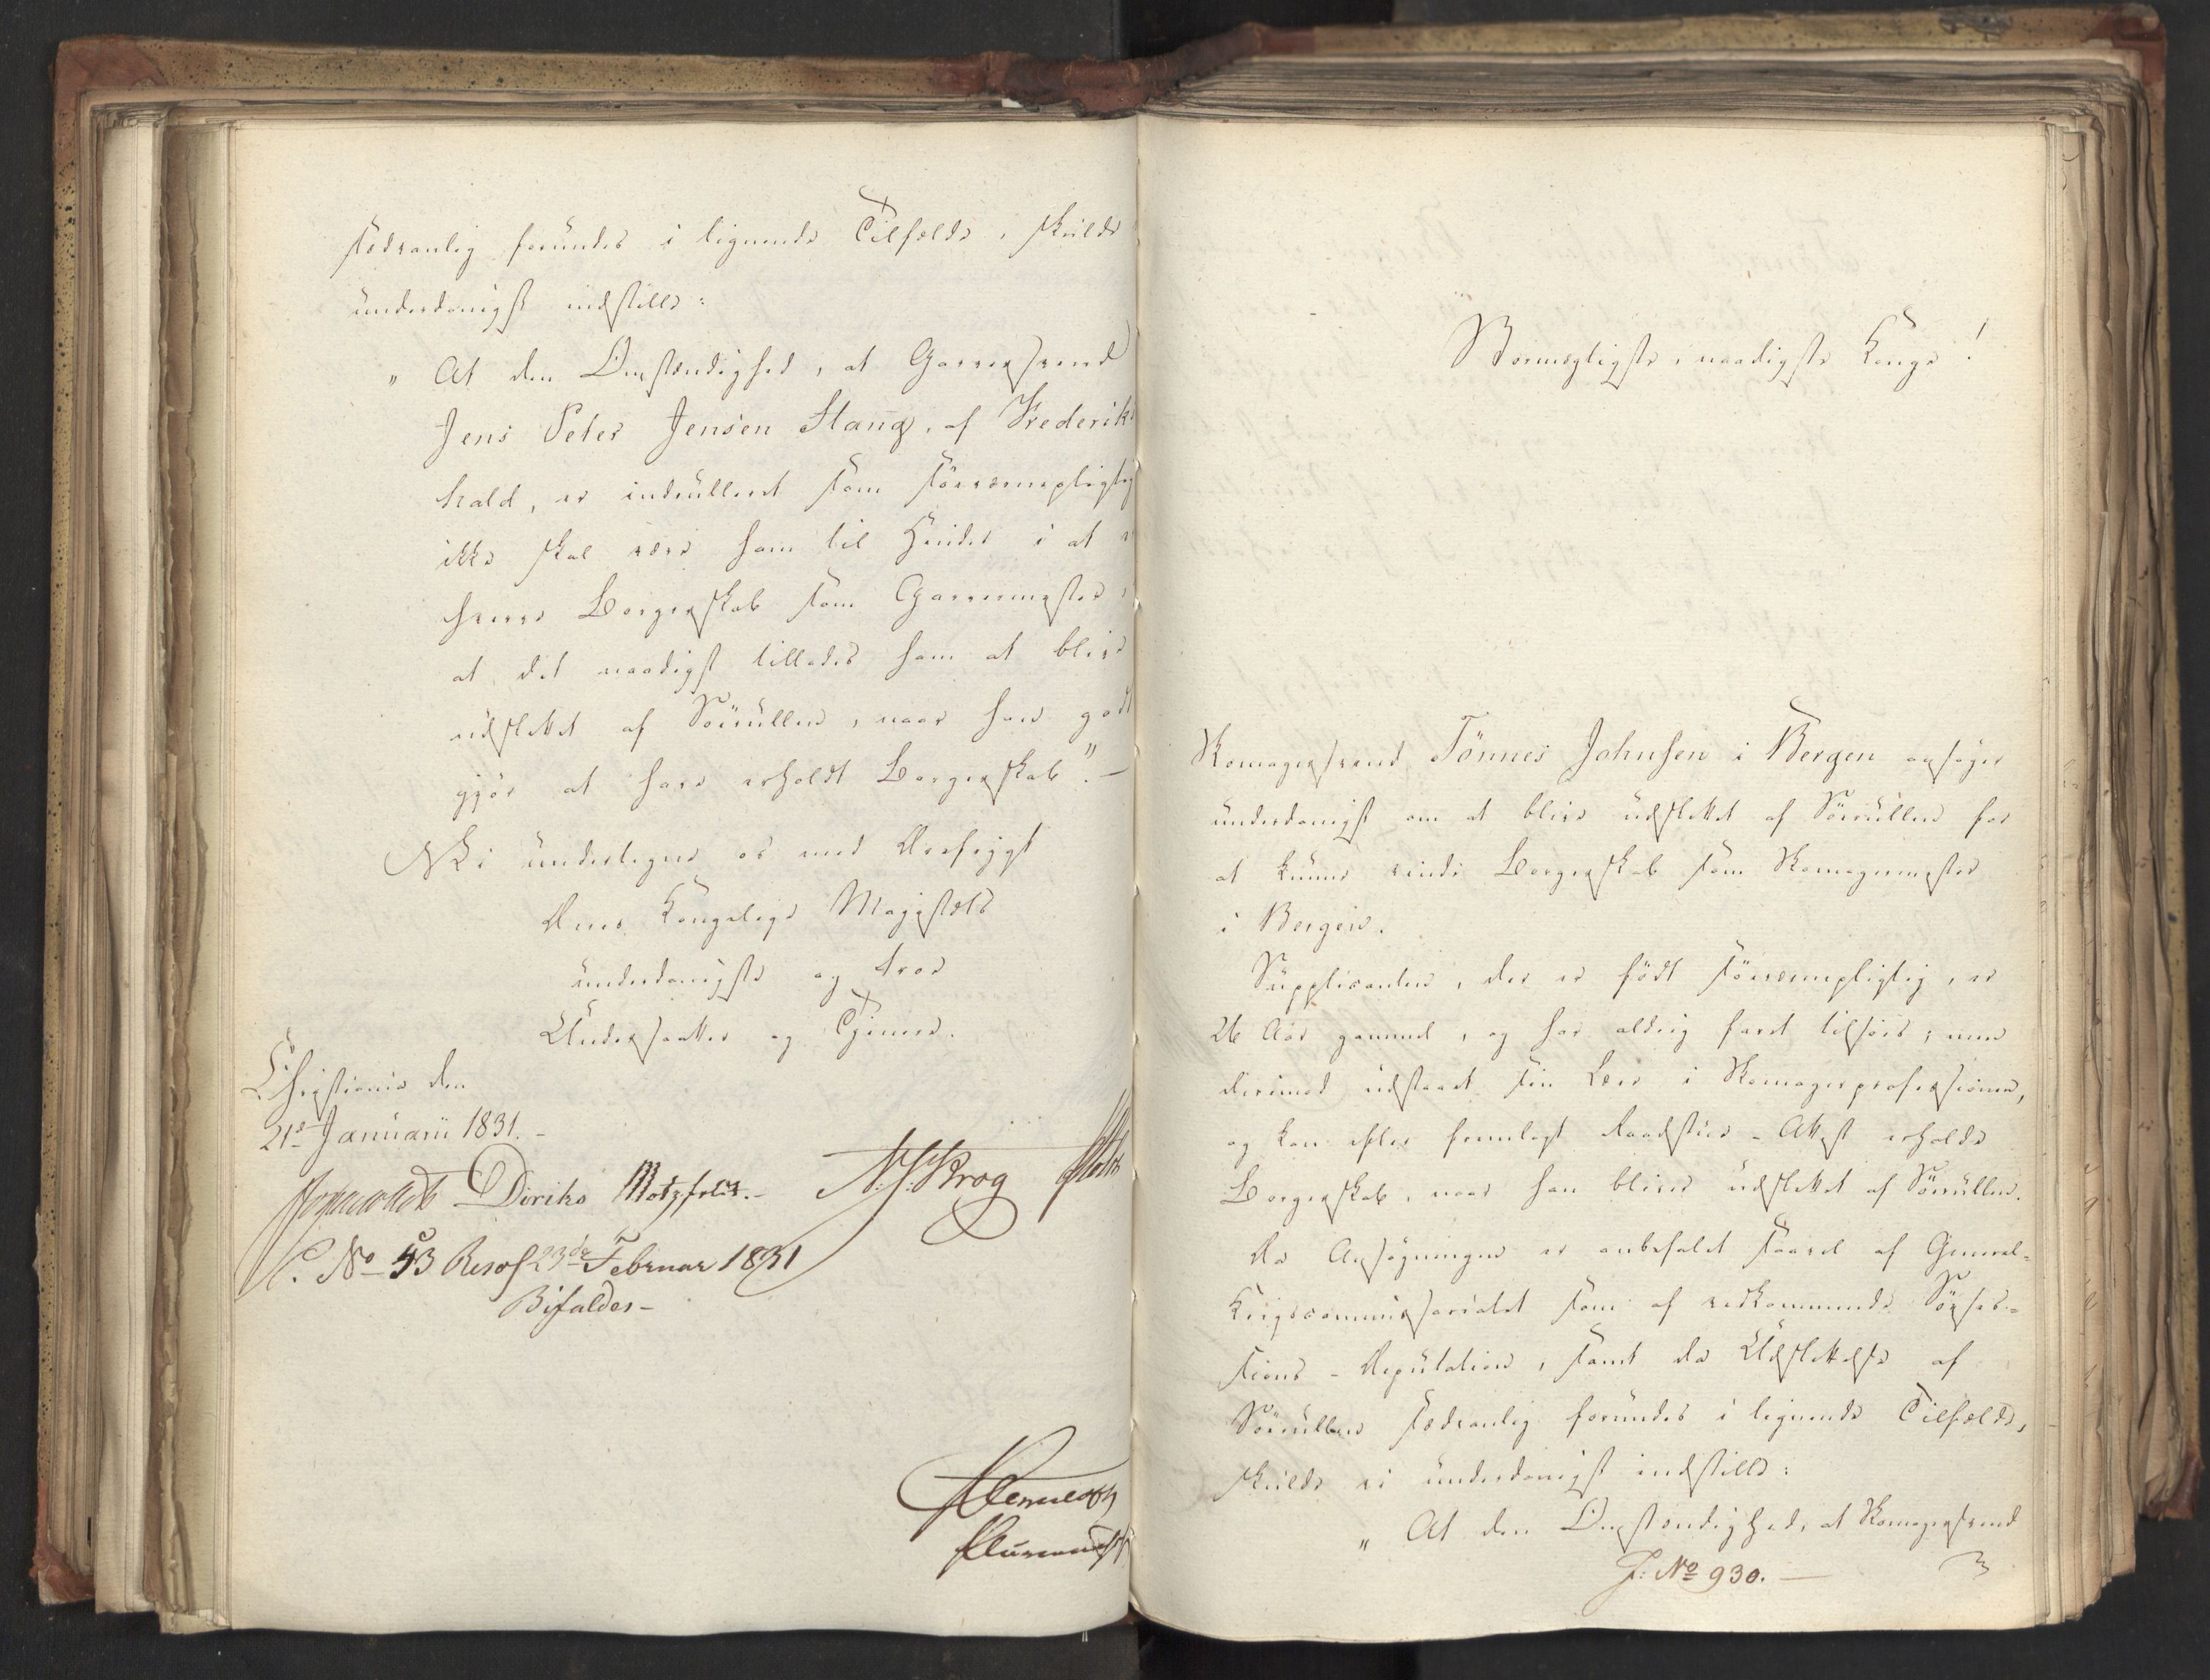 sædvanlig forundes i lignende Tilfælde, skulde
underdanigst indstille:
„At den Omstændighed, at Garversvend
Jens Peter Jensen Stang, af Frederiks
hald, er indrulleret som söeværnepligtig
ikke skal være ham til Hinder i at
hverve Borgerskab som Garvermester,
at det naadigst tillades ham at blive
udslettet af Söerullen, naar han godt
gjör at have erholdt Borgerskab".—
Vi undertegne os med Ærefrygt
Deres Kongelige Majestæts
underdanigste og troe
Undersaatter og Tjenere.
Christiania den
21e Januarii 1831.-
Diriks Motzfeldt.- N. J. Krog
No 53 Resol 23de Februar 1831
Bifaldes-
Stormægtigste, naadigste Konge!
Skomagersvend Tönnes Johnsen i Bergen ansöger
underdanigst om at blive udslettet af Söerullen for
at kunne vinde Borgerskab som Skomagermester
i Bergen.
Supplicanten, der er födt söeværnepligtig, er
26 Aar gammel, og har aldrig faret tilsöes; men
derimod udstaaet sin Lære i Skomagerprofessionen,
og kan efter fremlagt Raadstue-Attest erholde
Borgerskab, naar han bliver udslettet af Söerullen.
Da Ansögningen er anbefalet saavel af General-
Krigscommissariatet som af vedkommende Söeses-
sions-Deputation, samt da Udslettelse af
Söerullen sædvanlig forundes i lignende Tilfælde,
skulde vi underdanigst indstille:
„At den Omstændighed, at Skomagersvend
J: No 930.—